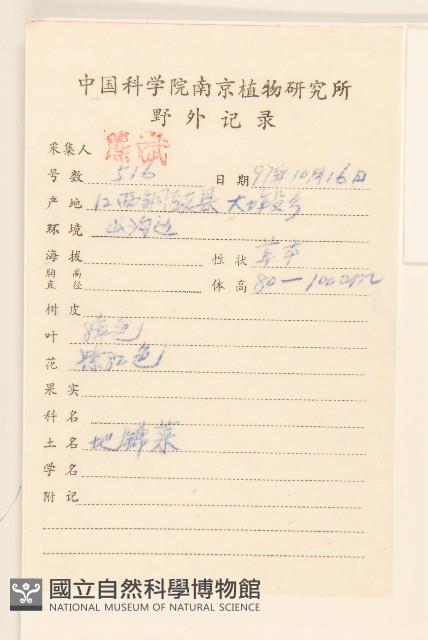 中国科学院南京植物研究所
野外记录
采集人 熊斌
号数 516 日期 97年10月16日
产地 江西铜鼓县大塅乡
环境 山沟边
海拔 性状 草本
胸高直径 体高 80—100cm
树皮
叶 绿色
花 紫红色
果实
科名
土名 地锦菜
学名
附记
國立自然科學博物館
NATIONAL MUSEUM OF NATURAL SCIENCE